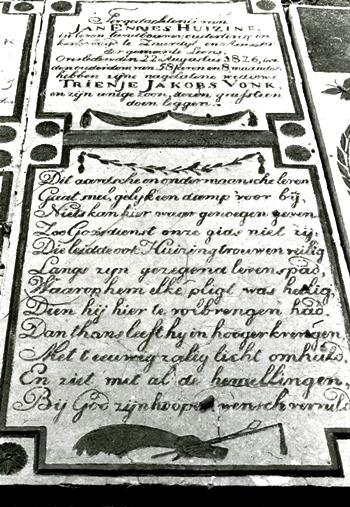 Ter gedachtenis van
JAN ENNES HUIZING,
in leven landbouwer en
kerkvoogd te Zuurdijk en
der gemeente Leens
Overleden den 22 Augustus 1826, in
den ouderdom van 58 jaren en 8 maanden
hebben zijne nagelatene weduwe
TRIENJE JAKOBS VONK,
en zijn eenige zoon, dezen grafsteen
doen leggen.
Dit aardsche en ondermaansche leven
Gaat meê, gelijk een damp voor bij,
Niets kan hier waar genoegen geven
Zoo Godsdienst onze gids niet zij.
Die leidde ook Huizing trouw en veilig
Langs zijn gezegend levenspad,
Waarop hem elke pligt was heilig,
Dien hij hier te volbrengen had.
Dan thans leeft hij in hooger kringen,
Met eeuwig zalig licht omhuld,
En ziet met al de hemellingen,
Bij God zijn hoop en wensch vervuld